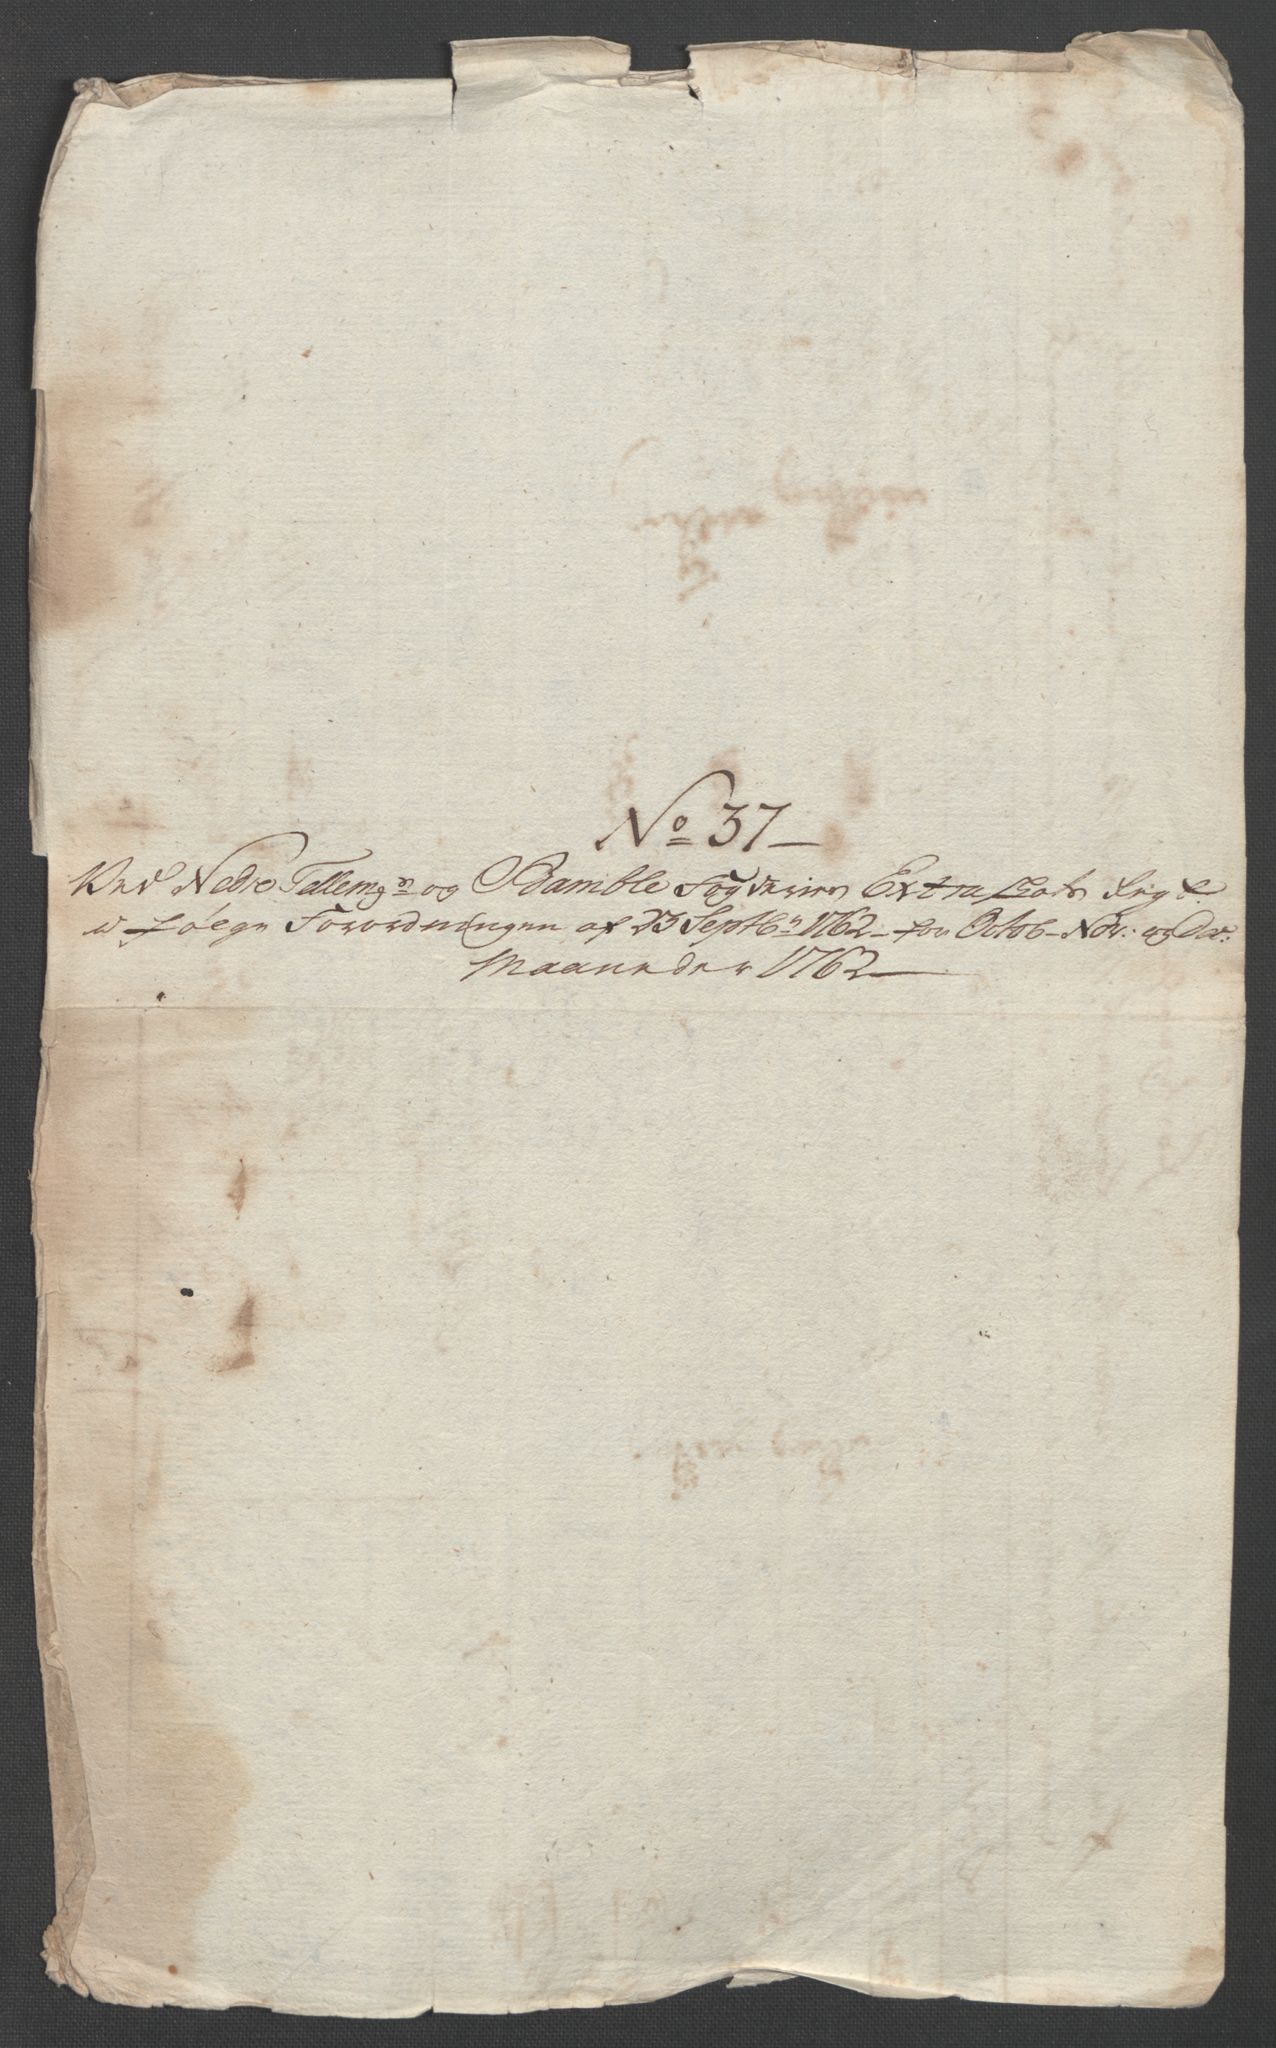 No 37
Ved Nedre Tellemn og Bamble Fogderier Extra Skats Regn
u følge Forordningen af 23 Septbr 1762 for Octob Nov: og Dec:
Maaneder 1762